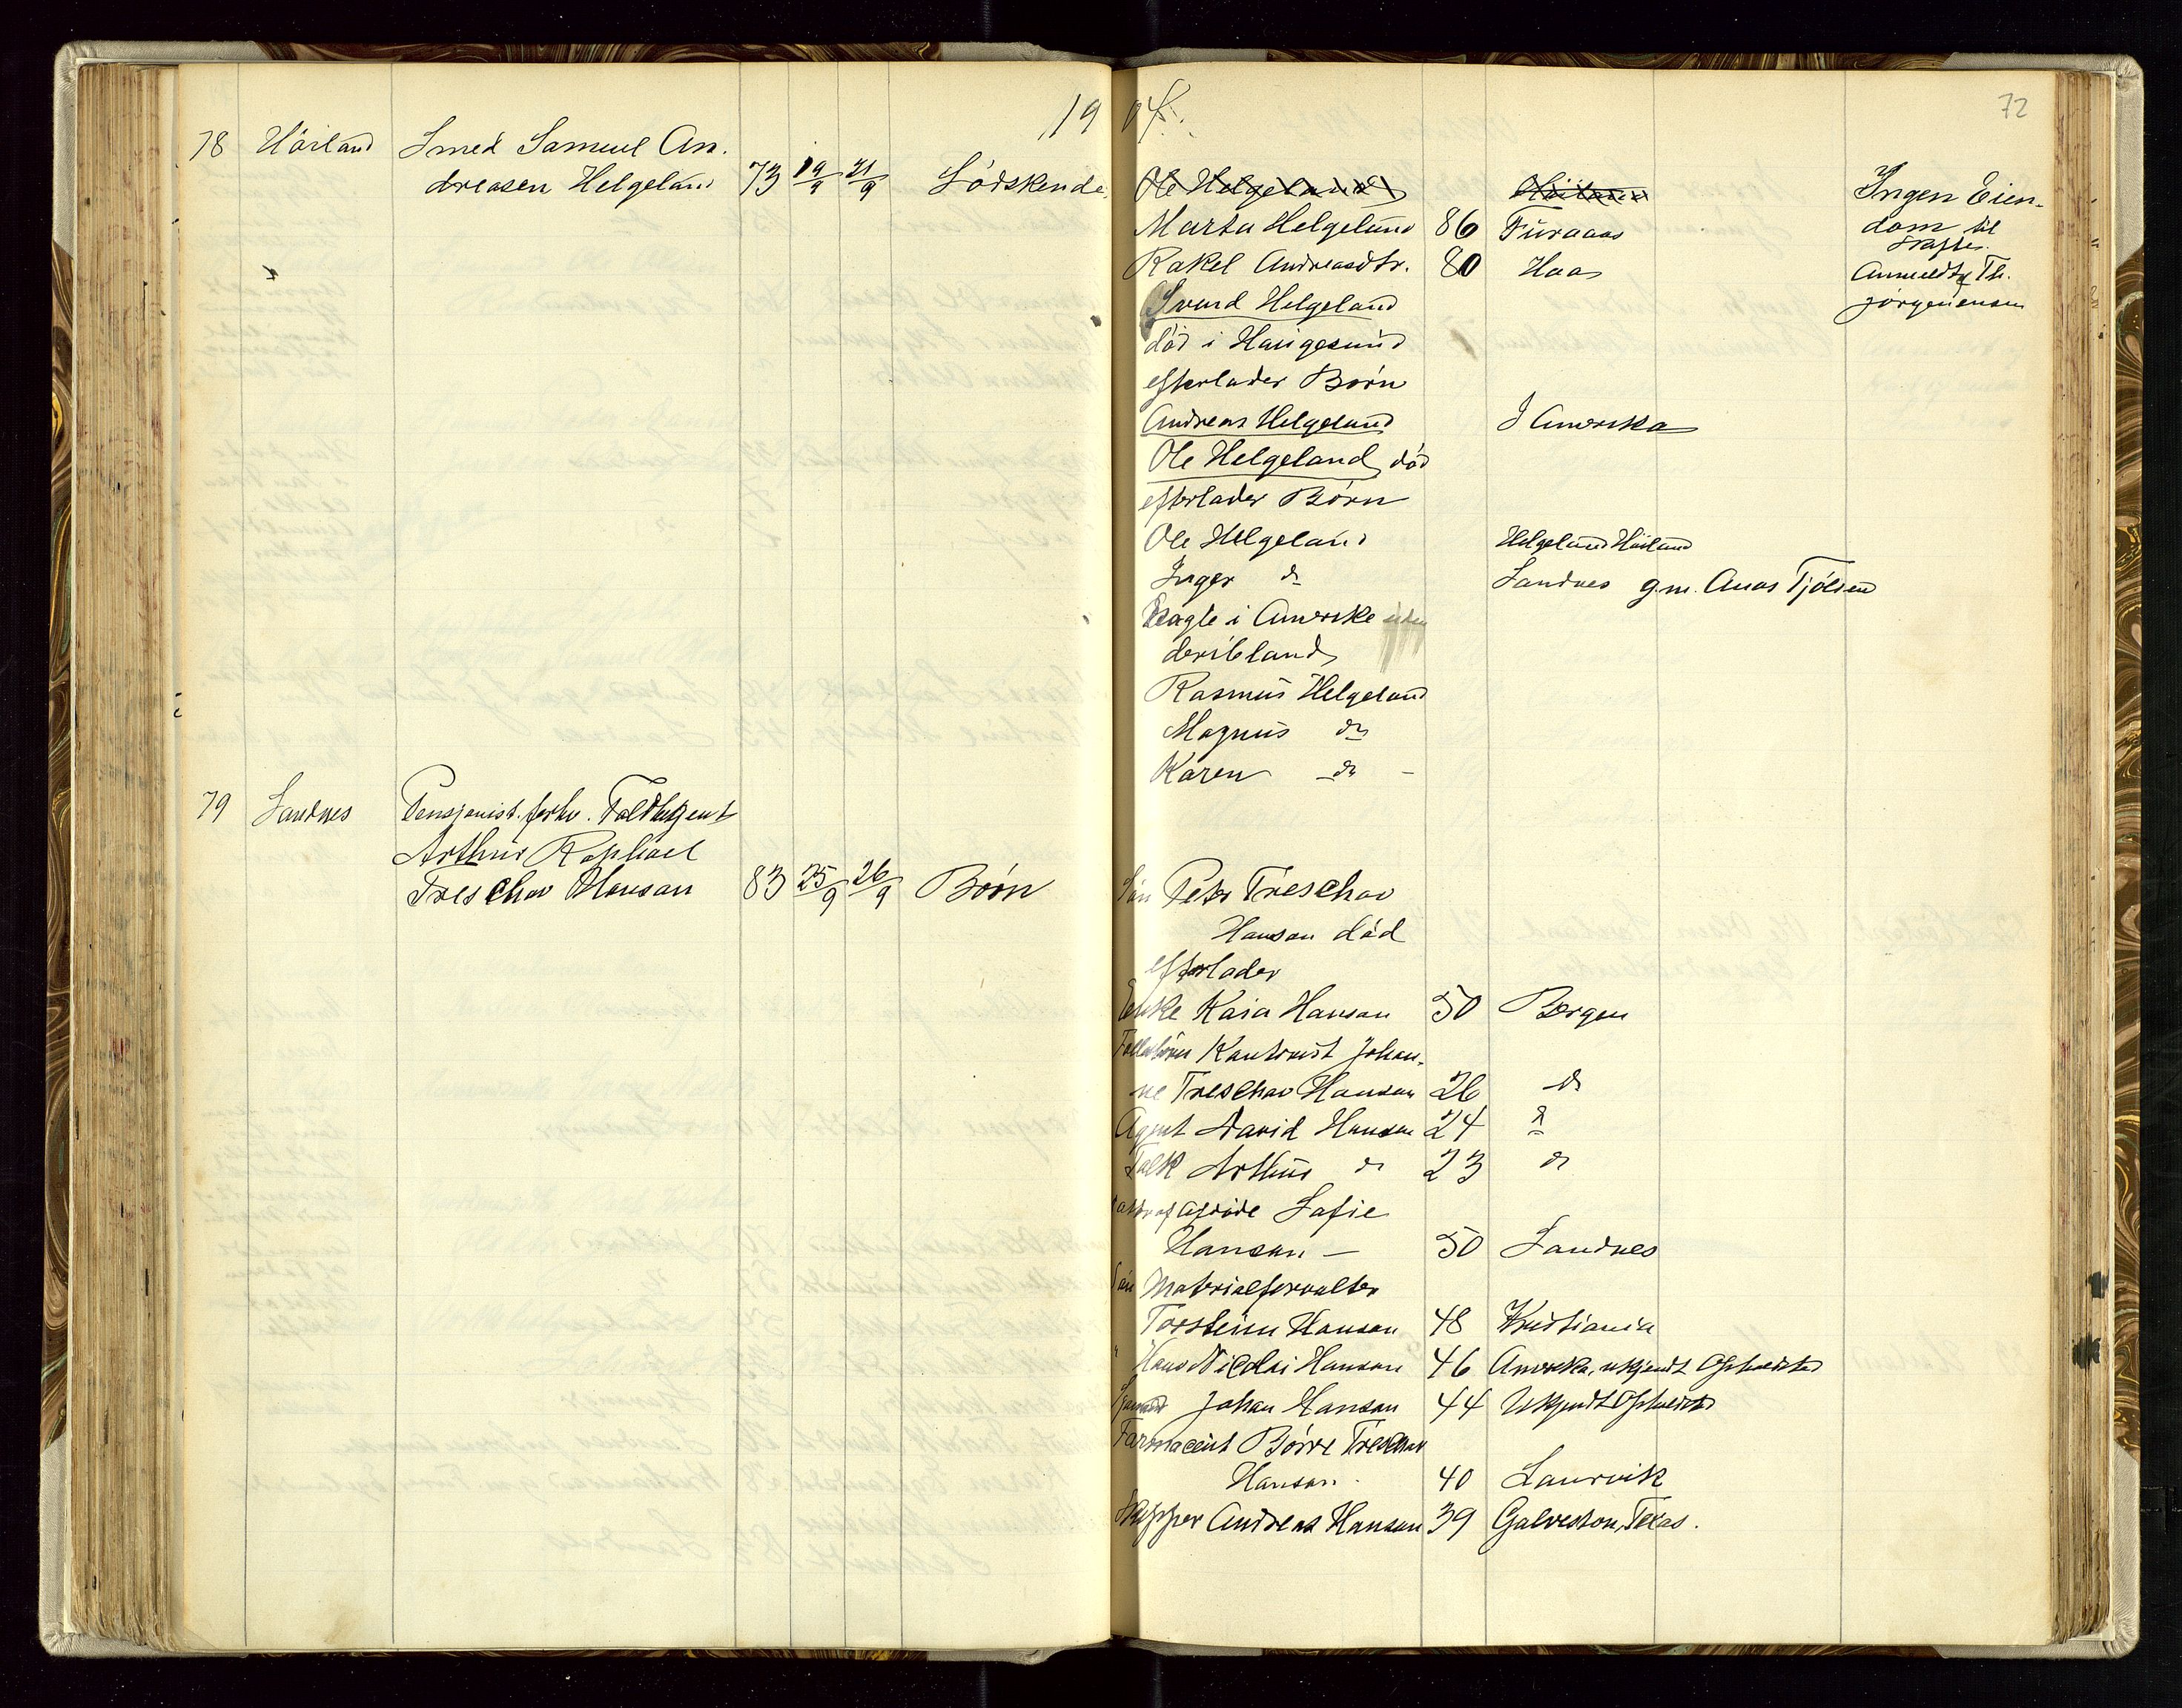 1904.
72
78 Höiland Smed Samuel An-
dreasen Helgeland 73 19/9 21/9 Södskende
Ole Helgeland Höiland Ingen Eien-
Marta Helgeland 86 Furaaas dom til
Skifte.
Rakel Andreasdtr. 80 Haas Anmeldt af Th.
Svend Helgeland Jörgensen
död i Haugesund
efterlader Börn
Andreas Helgeland I Amerika
Ole Helgeland, död
efterlader Börn
Ole Helgeland Helgeland Höiland
Inger do Sandnes g.m. Anas Tjölsen
i Amerika
deriblandt
Rasmus Helgeland
Magnus do
Karen do -
79 Sandnes Pensjonist. forhv. Toldbetjent
Arthur Raphael
Treschow Hanson 83 25/9 26/9 Börn
Sön Peter Treschow
Hanson död
efterlader
Enke Kaia Hanson 50 Bergen
Fællesbörn Kontorist Johan-
ne Treschow Hanson 26 do
Agent David Hanson 24 do
Falk Arthur do 23 do
Datter af Afdöde Sofie
Hanson - 50 Sandnes
Sön Materialforvalter
Torstein Hanson 48 Kristiania
" Hans Nicolai Hanson 46 Amerika, ukjendt Opholdsted
Sjömand Johan Hanson 44 Ukjendt Opholdsted
Farmaceut Börre Treschow
Hanson 40 Laurvik
Skipper Andreas Hanson 39 Galveston, Texas.